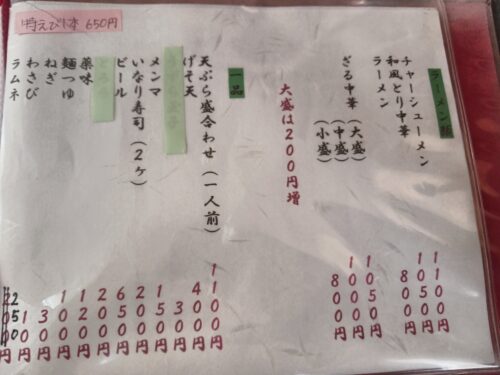 特えび天 650円
ラーメン類
チャーシューメン 1100円
和風とり中華 1050円
ラーメン 800円
ざる中華(大盛) 1100円
(中盛) 1050円
(小盛) 800円
大盛は200円増
一品
天ぷら盛合わせ(一人前) 1100円
げそ天 400円
30円
メンマ 150円
いなり寿司(2ケ) 200円
ビール 650円
200円
薬味 120円
麺つゆ 100円
ねぎ 30円
わさび 10円
ラムネ 250円